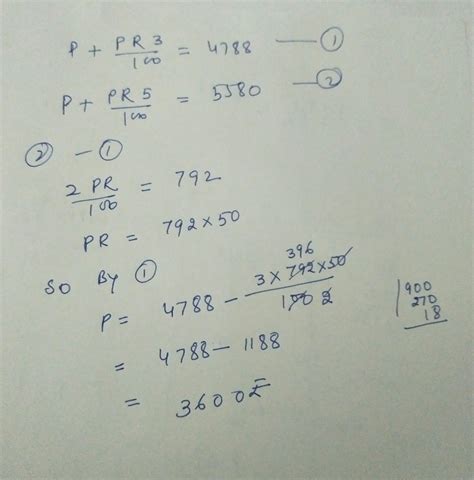 P + PR3/100 = 4788 —— ①
P + PR5/100 = 5580 —— ②
② - ①
2PR/100 = 792
PR = 792×50
So By ①
396
P = 4788 - 3×792×50/100 2
= 4788 - 1188
= 3600
900
270
18